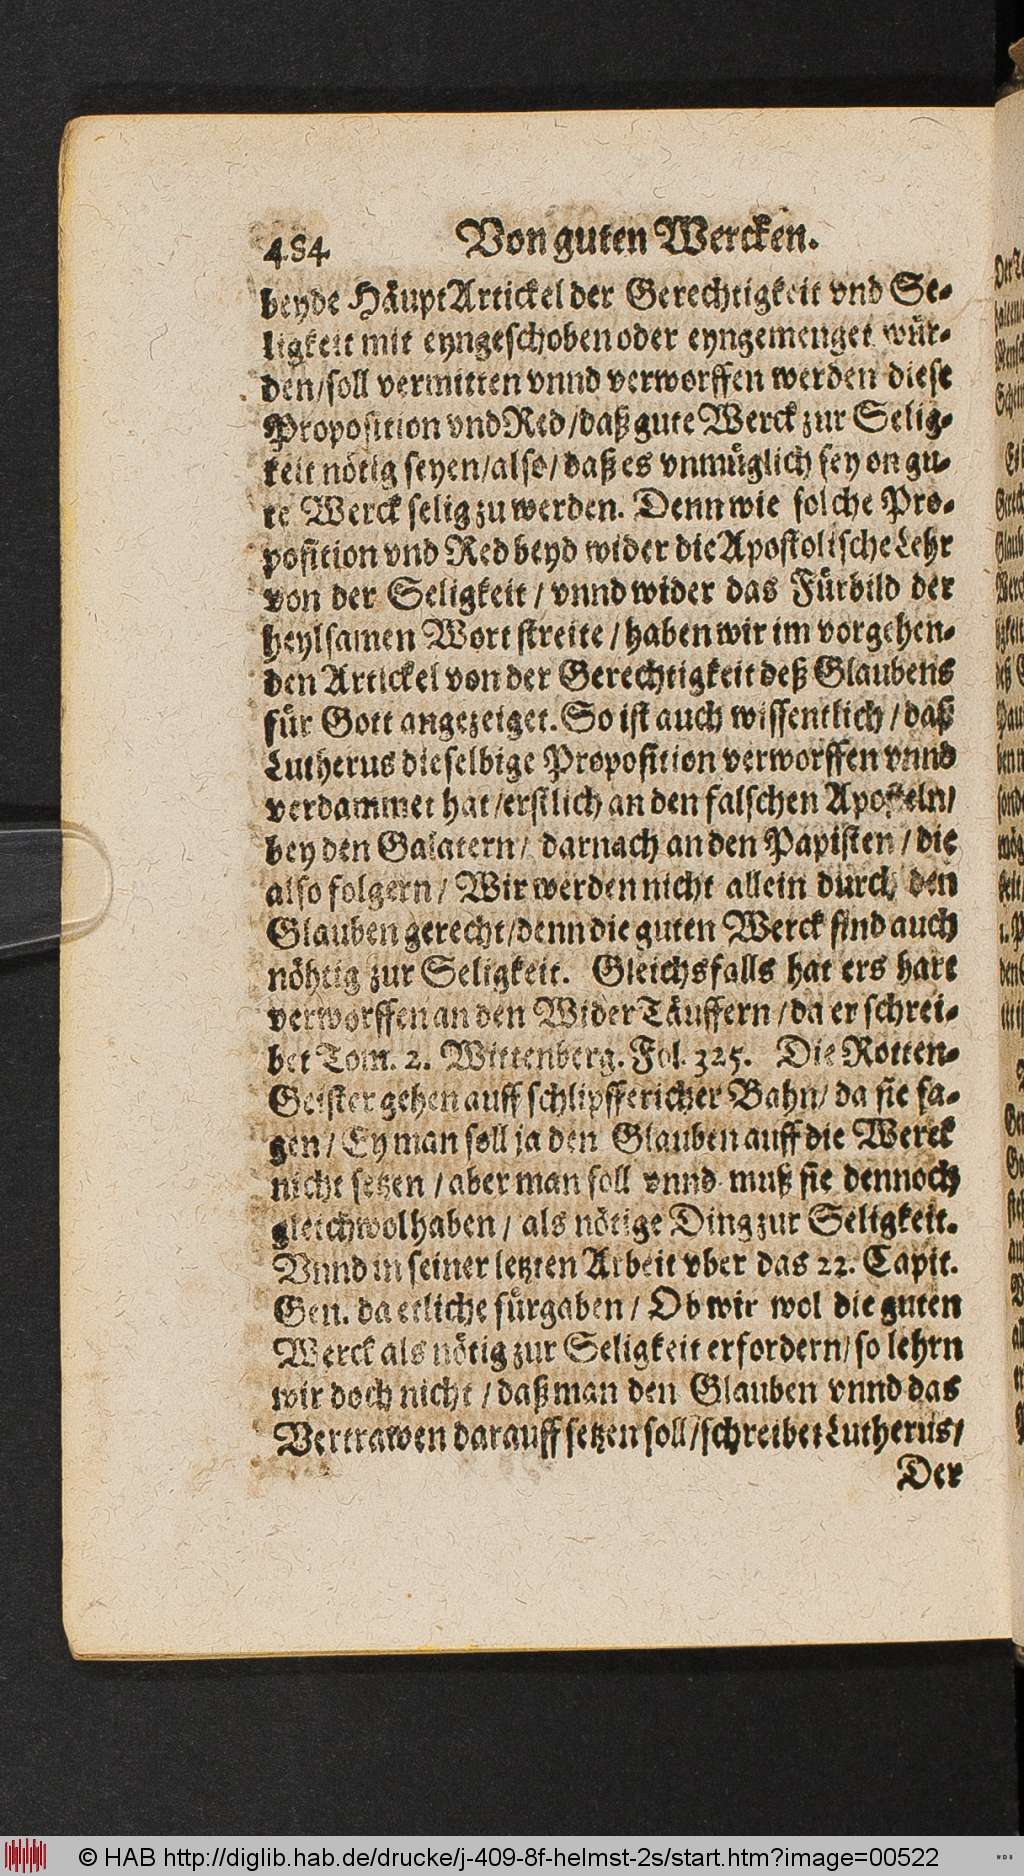 484 Von guten Wercken.
beyde HäuptArtickel der Gerechtigkeit vnd Se-
ligkeit mit eyngeschoben oder eyngemenget wür-
den/soll vermitten vnnd verworffen werden diese
Proposition vnd Red/daß gute Werck zur Selig-
keit nötig seyen/also/daß es vnmüglich sey on gu-
te Werck selig zu werden. Denn wie solche Pro-
position vnd Red beyd wider die Apostolische Lehr
von der Seligkeit/vnnd wider das Fürbild der
heylsamen Wort streite/haben wir im vorgehen-
den Artickel von der Gerechtigkeit deß Glaubens
für Gott angezeiget. So ist auch wissentlich/daß
Lutherus dieselbige Proposition verworffen vnnd
verdammet hat/erstlich an den falschen Aposteln/
bey den Galatern/ darnach an den Papisten/die
also folgern/Wir werden nicht allein durch den
Glauben gerecht/denn die guten Werck sind auch
nöhtig zur Seligkeit. Gleichsfalls hat ers hart
verworffen an den WiderTäuffern/da er schrei-
bet Tom. 2. Wittenberg. Fol. 325. Die Rotten-
Geister gehen auff schlipffericher Bahn/da sie sa-
gen/Ey man soll ja den Glauben auff die Werck
nicht setzen/aber man soll vnnd muß sie dennoch
gleichwol haben/als nötige Ding zur Seligkeit.
Vnnd in seiner letzten Arbeit vber das 22. Capit.
Gen. da etliche fürgaben/Ob wir wol die guten
Werck als nötig zur Seligkeit erfordern/so lehrn
wir doch nicht/daß man den Glauben vnnd das
Vertrawen darauff setzen soll/schreibet Lutherus/
Der
© HAB http://diglib.hab.de/drucke/j-409-8f-helmst-2s/start.htm?image=00522